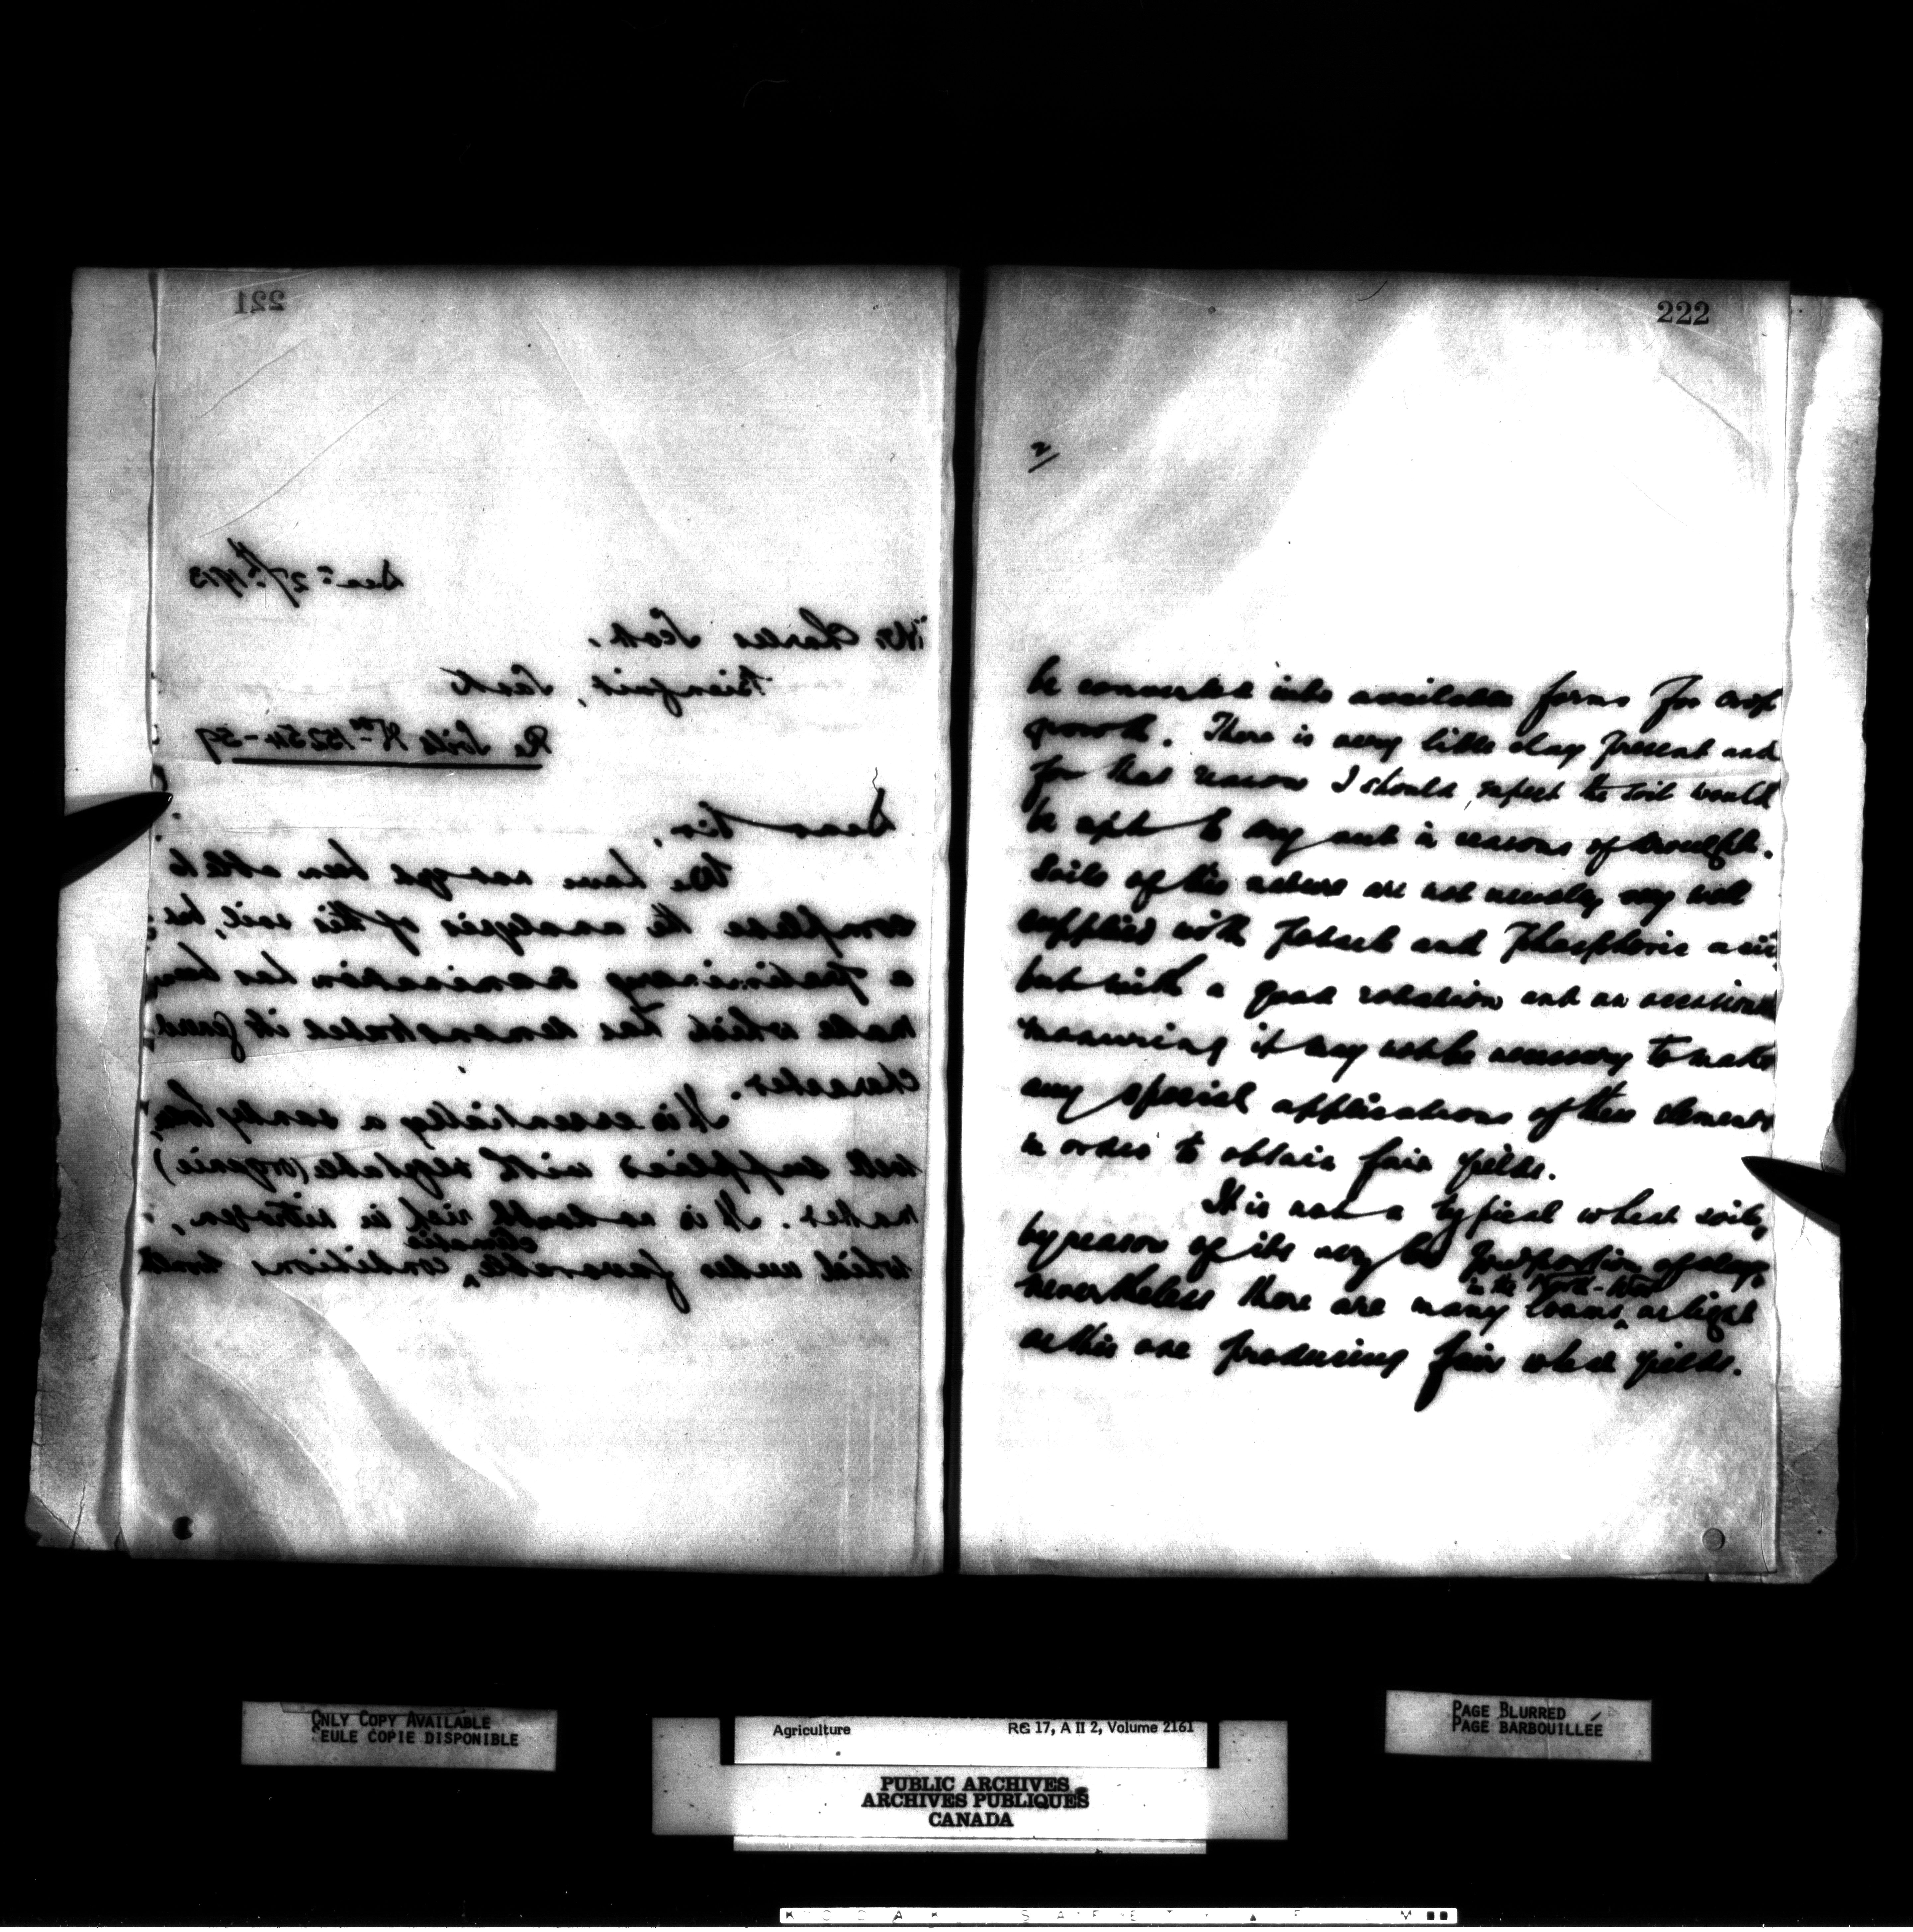 221
Dec. 27th 1913
Mr. Charles Scott,
Bienfait, Sask
Re Soils Nos 15254-59
Dear Sir,
We have not yet been able to
complete the analysis of this soil, but
a preliminary examination has been
made which has demonstrated its general
character.
It is essentially a sandy loam,
well supplied with vegetable (organic)
matter. It is no doubt rich in nitrogen,
climatic
which under favorable conditions would
222
2
be converted into available forms for crop
growth. There is very little clay present and
for that reason I should expect the soil would
be apt to dry out in seasons of drought.
Soils of this nature are not usually very well
supplied with Potash and Phosphoric acid
but with a good rotation and an occasional
manuring it may not be necessary to make
any special applications of these elements
in order to obtain fair yields.
It is not a typical wheat soil,
by reason of its very low proportion of clay,
in the North-West
nevertheless there are many loams as light
as this one producing fair wheat yields.
ONLY COPY AVAILABLE
SEULE COPIE DISPONIBLE
Agriculture RG 17, A II 2, Volume 2161
PUBLIC ARCHIVES
ARCHIVES PUBLIQUES
CANADA
PAGE BLURRED
PAGE BARBOUILLÉE